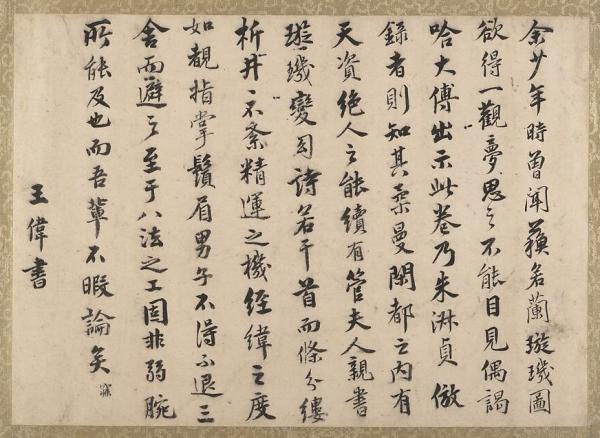 余少年時曾聞蘇若蘭璇璣圖
欲得一觀夢思之不能目見偶謁
哈大傅出示此卷乃朱淑貞倣
錄者則知其柔曼閑都之內有
天資絕人之能續有管夫人親書
璇璣變圖詩若干首而條分縷
析井〻不紊精運之機經緯之度
如觀指掌鬚眉男子不得不退三
舍而避之至于八法之工固非弱腕
所能及也而吾輩不暇論矣
王偉書